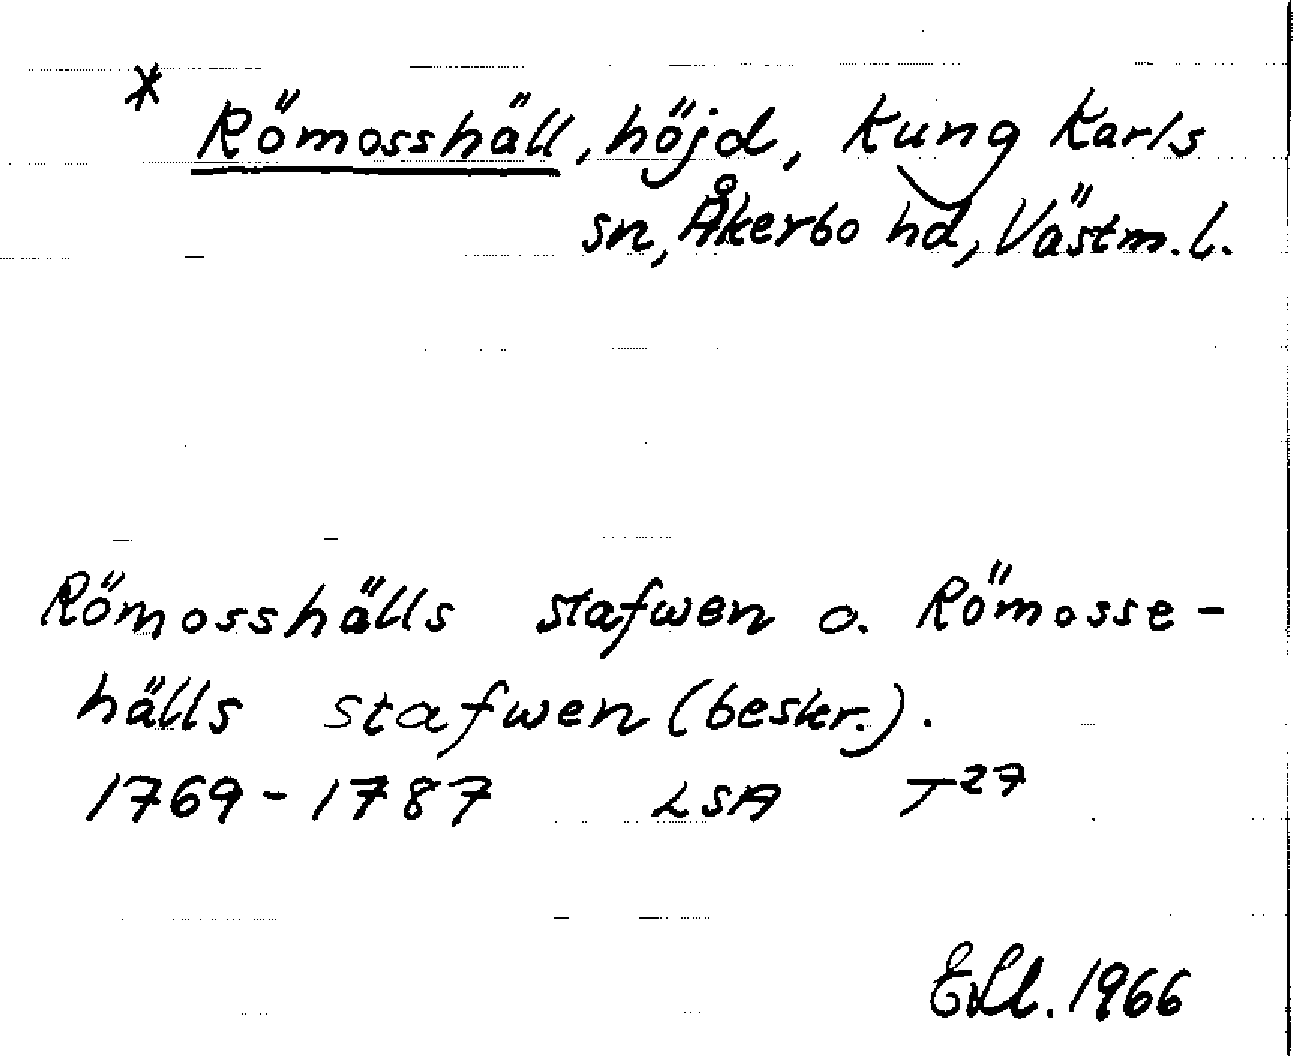 * Römosshäll, höjd, Kung Karls
sn, Åkerbo hd, Västm. l.
Römosshälls stafwen o. Römosse-
hälls stafwen (beskr.).
1769-1787 LSA T27
1966